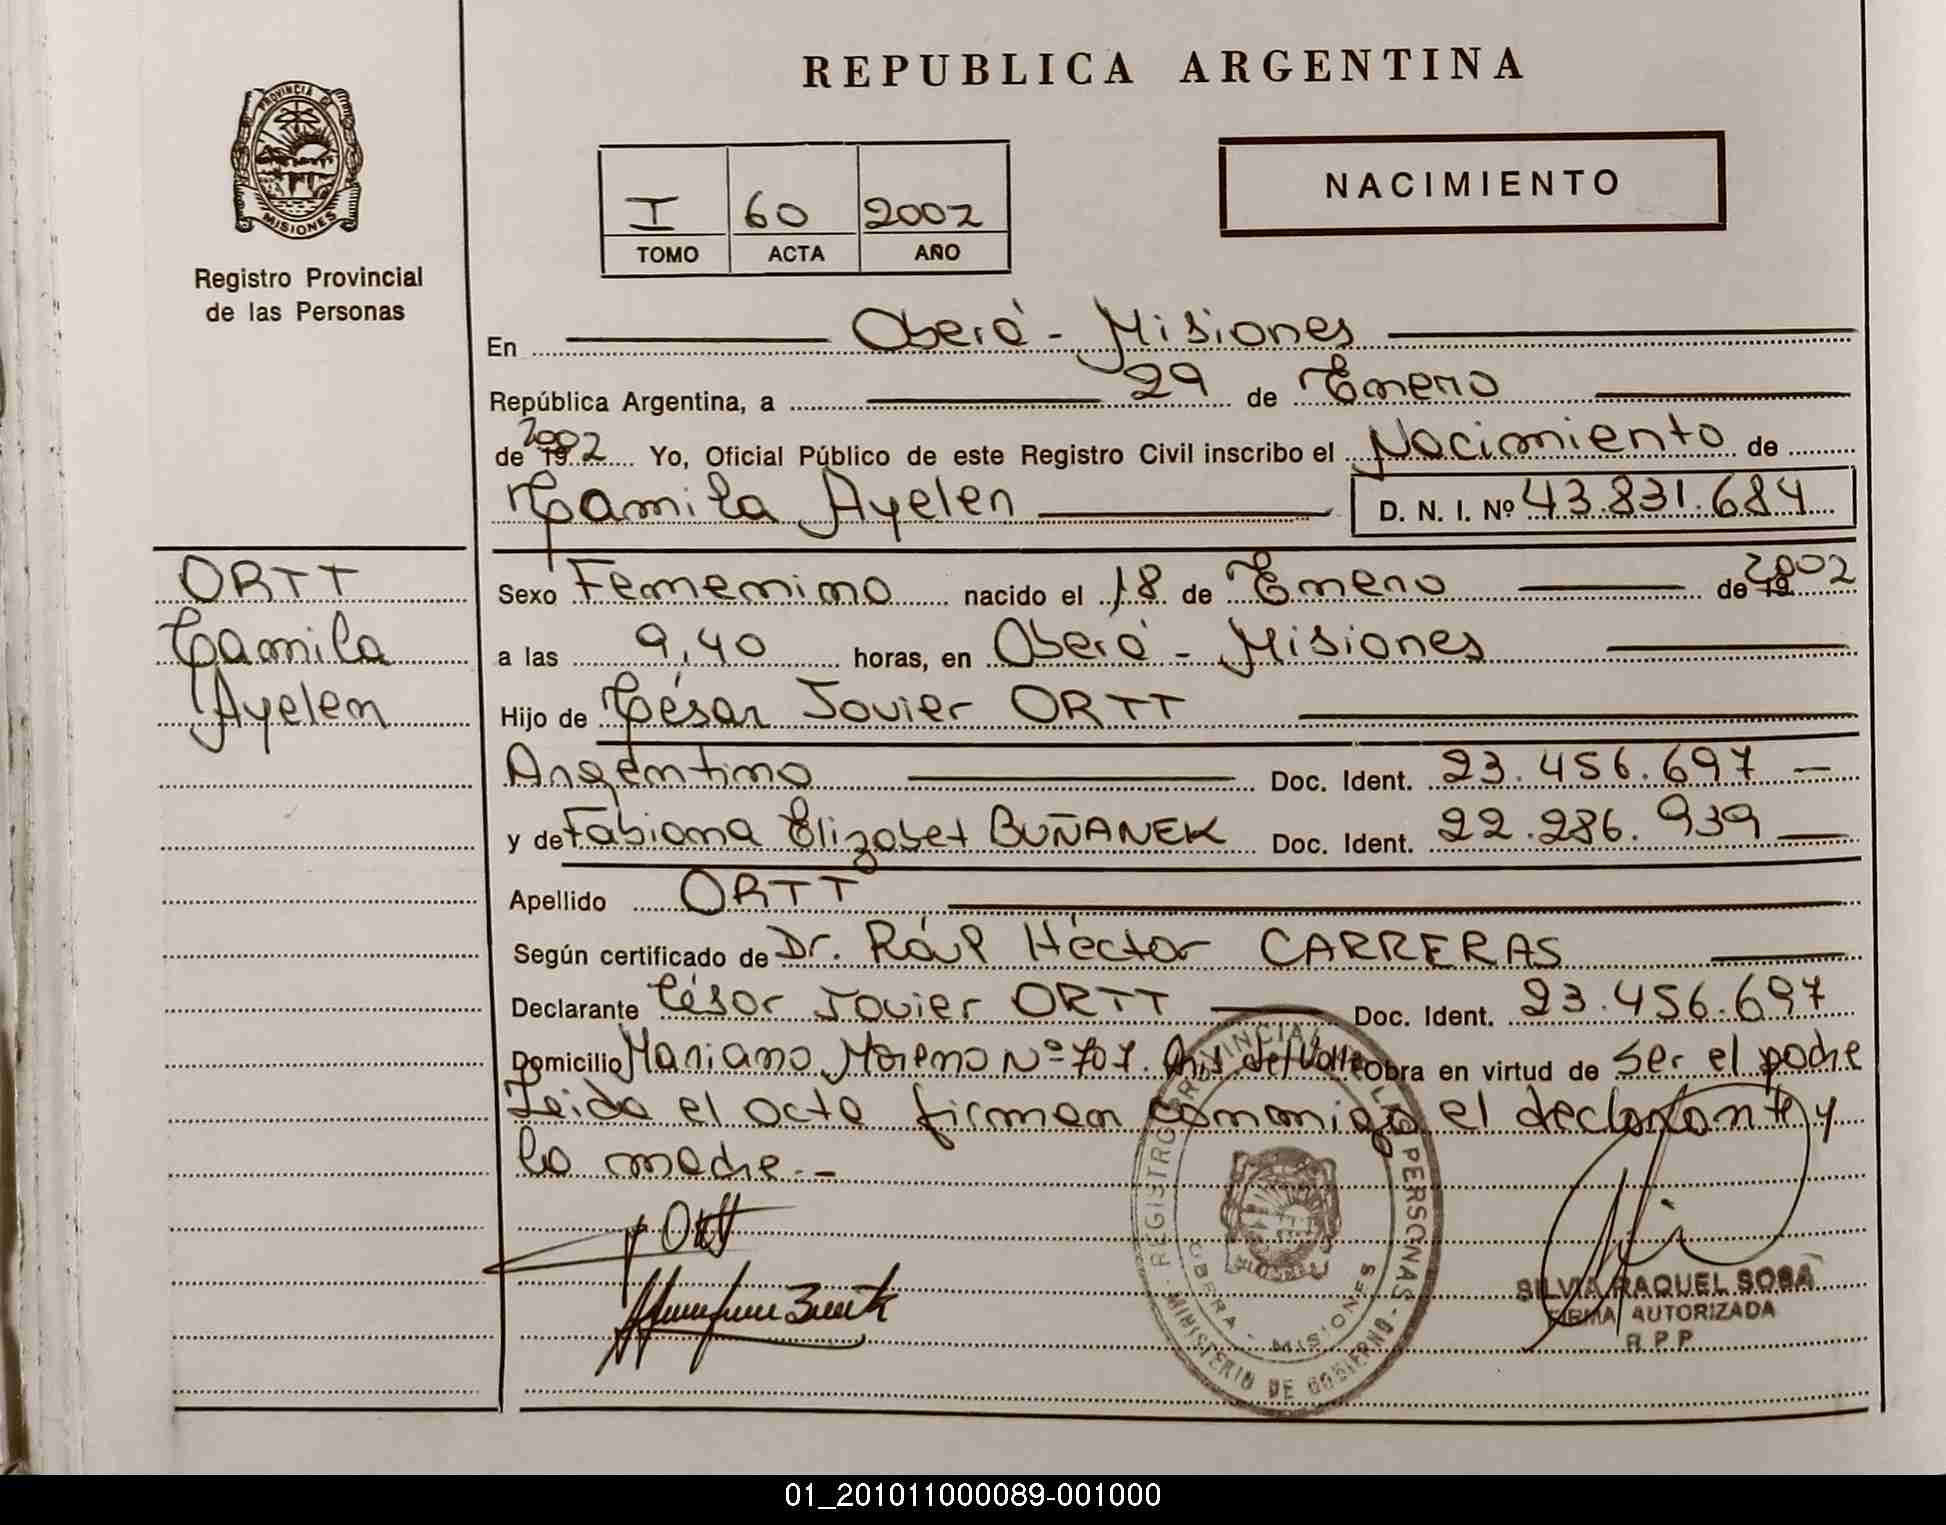 REPUBLICA ARGENTINA
PROVINCIA DE
MISIONES
Registro Provincial
de las Personas
I 60 2002
TOMO ACTA AÑO
NACIMIENTO
En Oberá - Misiones
República Argentina, a 29 de Enero
de 2002 Yo, Oficial Público de este Registro Civil inscribo el Nacimiento de
Camila Ayelen D. N. I. Nº 43.831.684
ORTT
Camila
Ayelen
Sexo Femenino nacido el 18 de Enero de 2002
a las 9,40 horas, en Oberá - Misiones
Hijo de César Javier ORTT
Argentino Doc. Ident. 23.456.697
y de Fabiana Elizabet BUÑANEK Doc. Ident. 22.286.939
Apellido ORTT
Según certificado de Dr. Rául Héctor CARRERAS
Declarante César Javier ORTT Doc. Ident. 23.456.697
Domicilio Mariano Moreno Nº 707. del Valle Obra en virtud de ser el padre
Leida el acta firman conmigo el declarante y
la madre.-
Ortt
REGISTRO PROVINCIAL DE LAS PERSONAS - MINISTERIO DE GOBIERNO
OBERA - MISIONES
SILVIA RAQUEL SOSA
FIRMA AUTORIZADA
R.P.P.
01_201011000089-001000